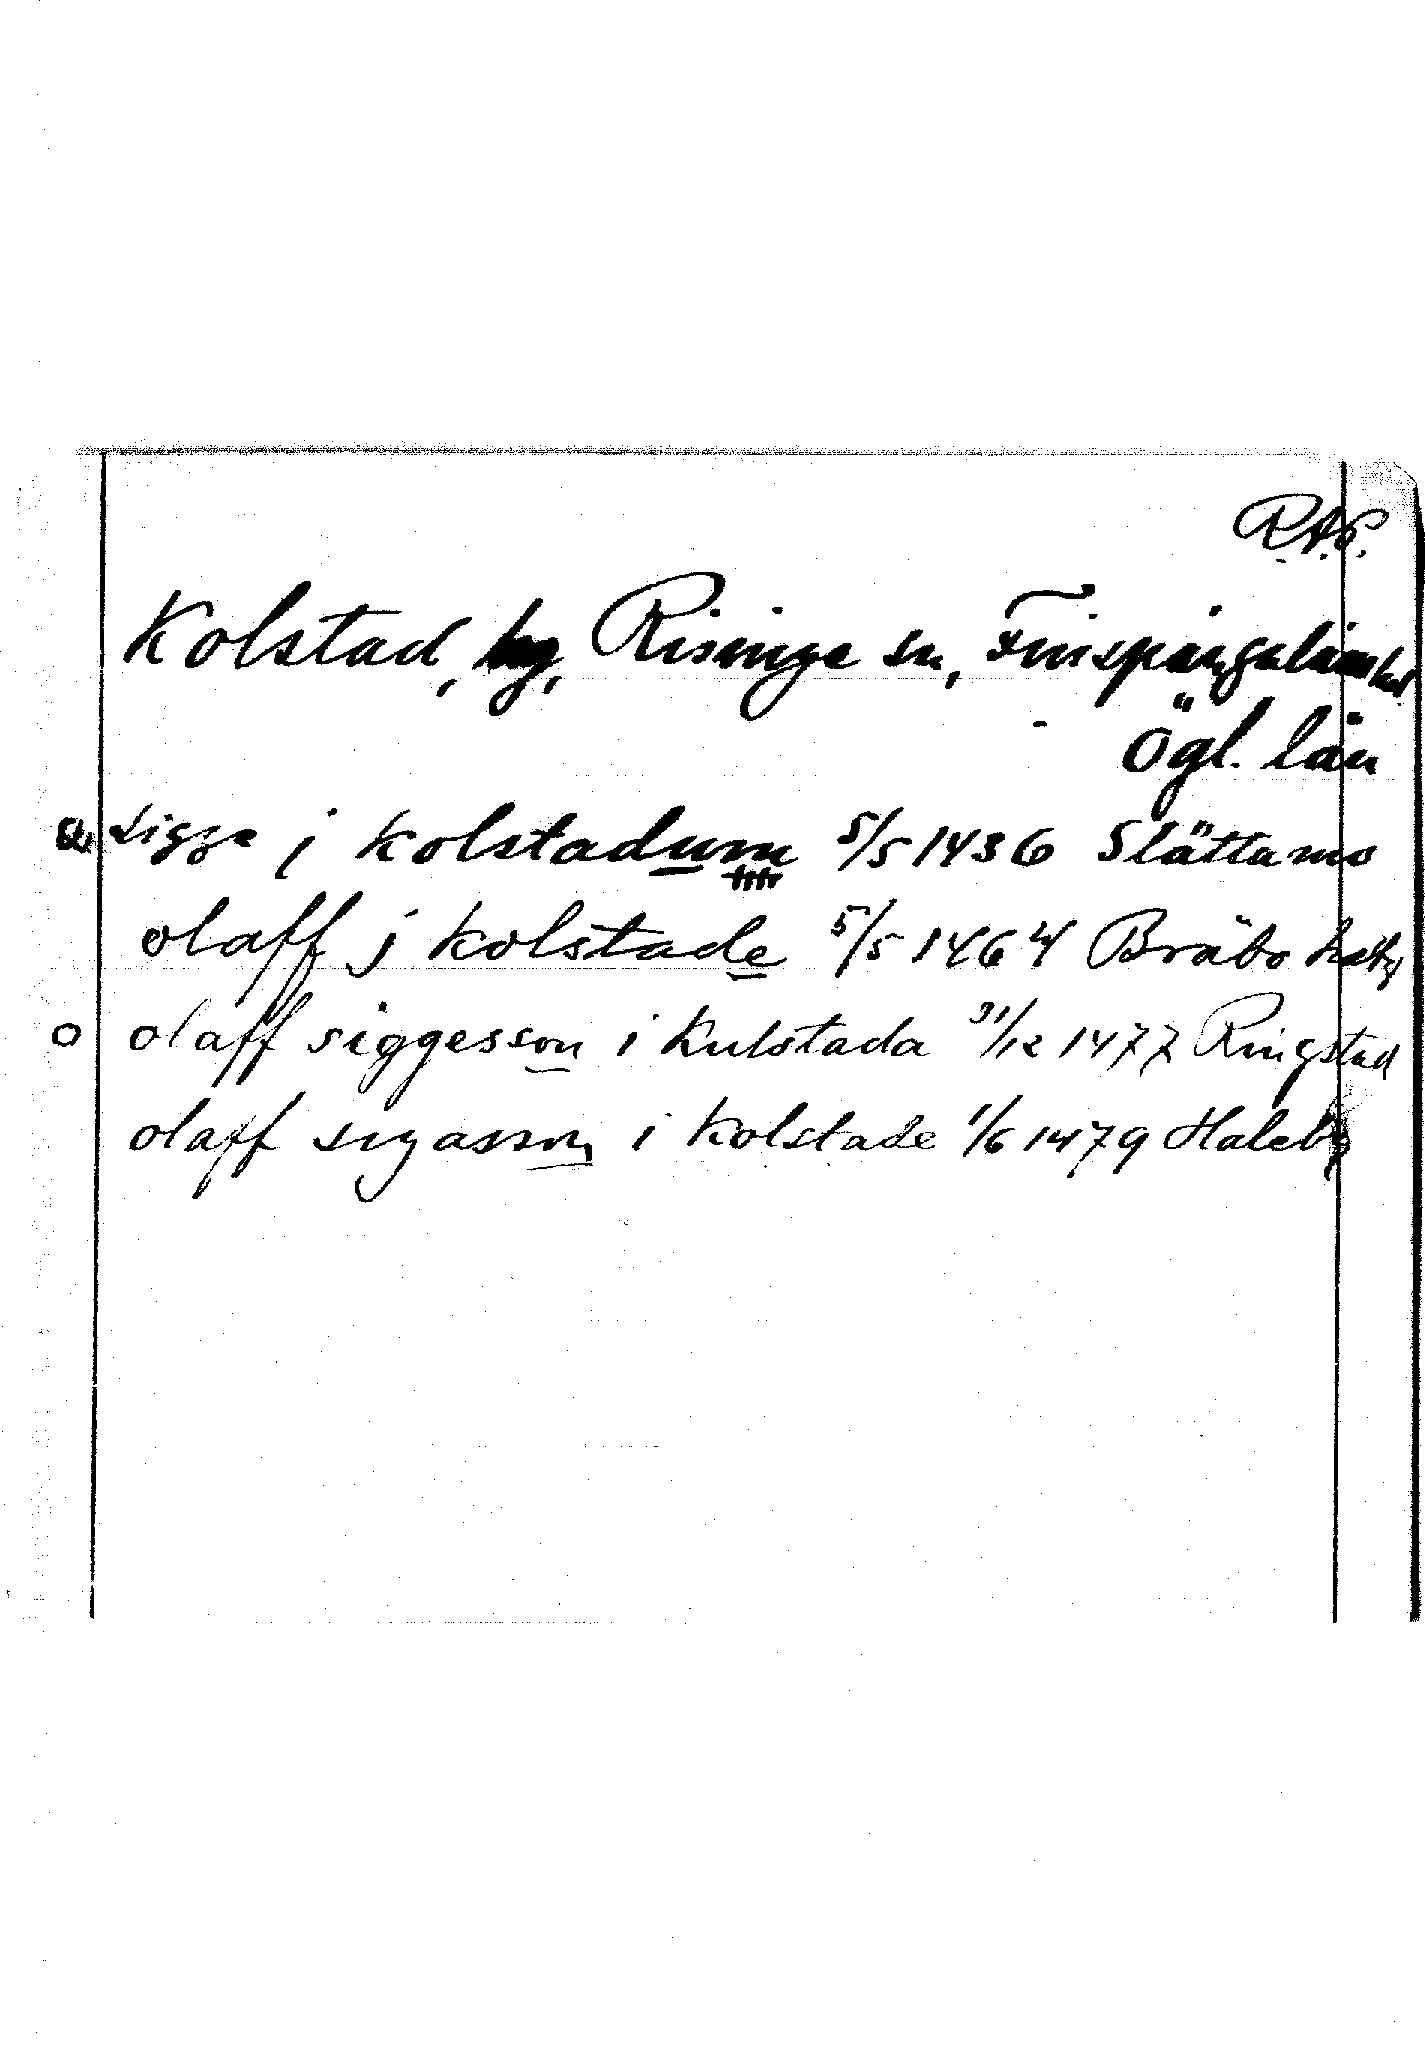 R.A.P.
Kolstad, by, Risinge sn, Finspångaläns hd
Ögl. län
Sigge j kolstadum 5/5 1436 Slättamo
olaff j kolstade 5/5 1464 Bråbo
o olaff siggesson i Kulstada 31/12 1477 Ringstad
olaff sigasson i kolstade 1/6 1479 Haleby